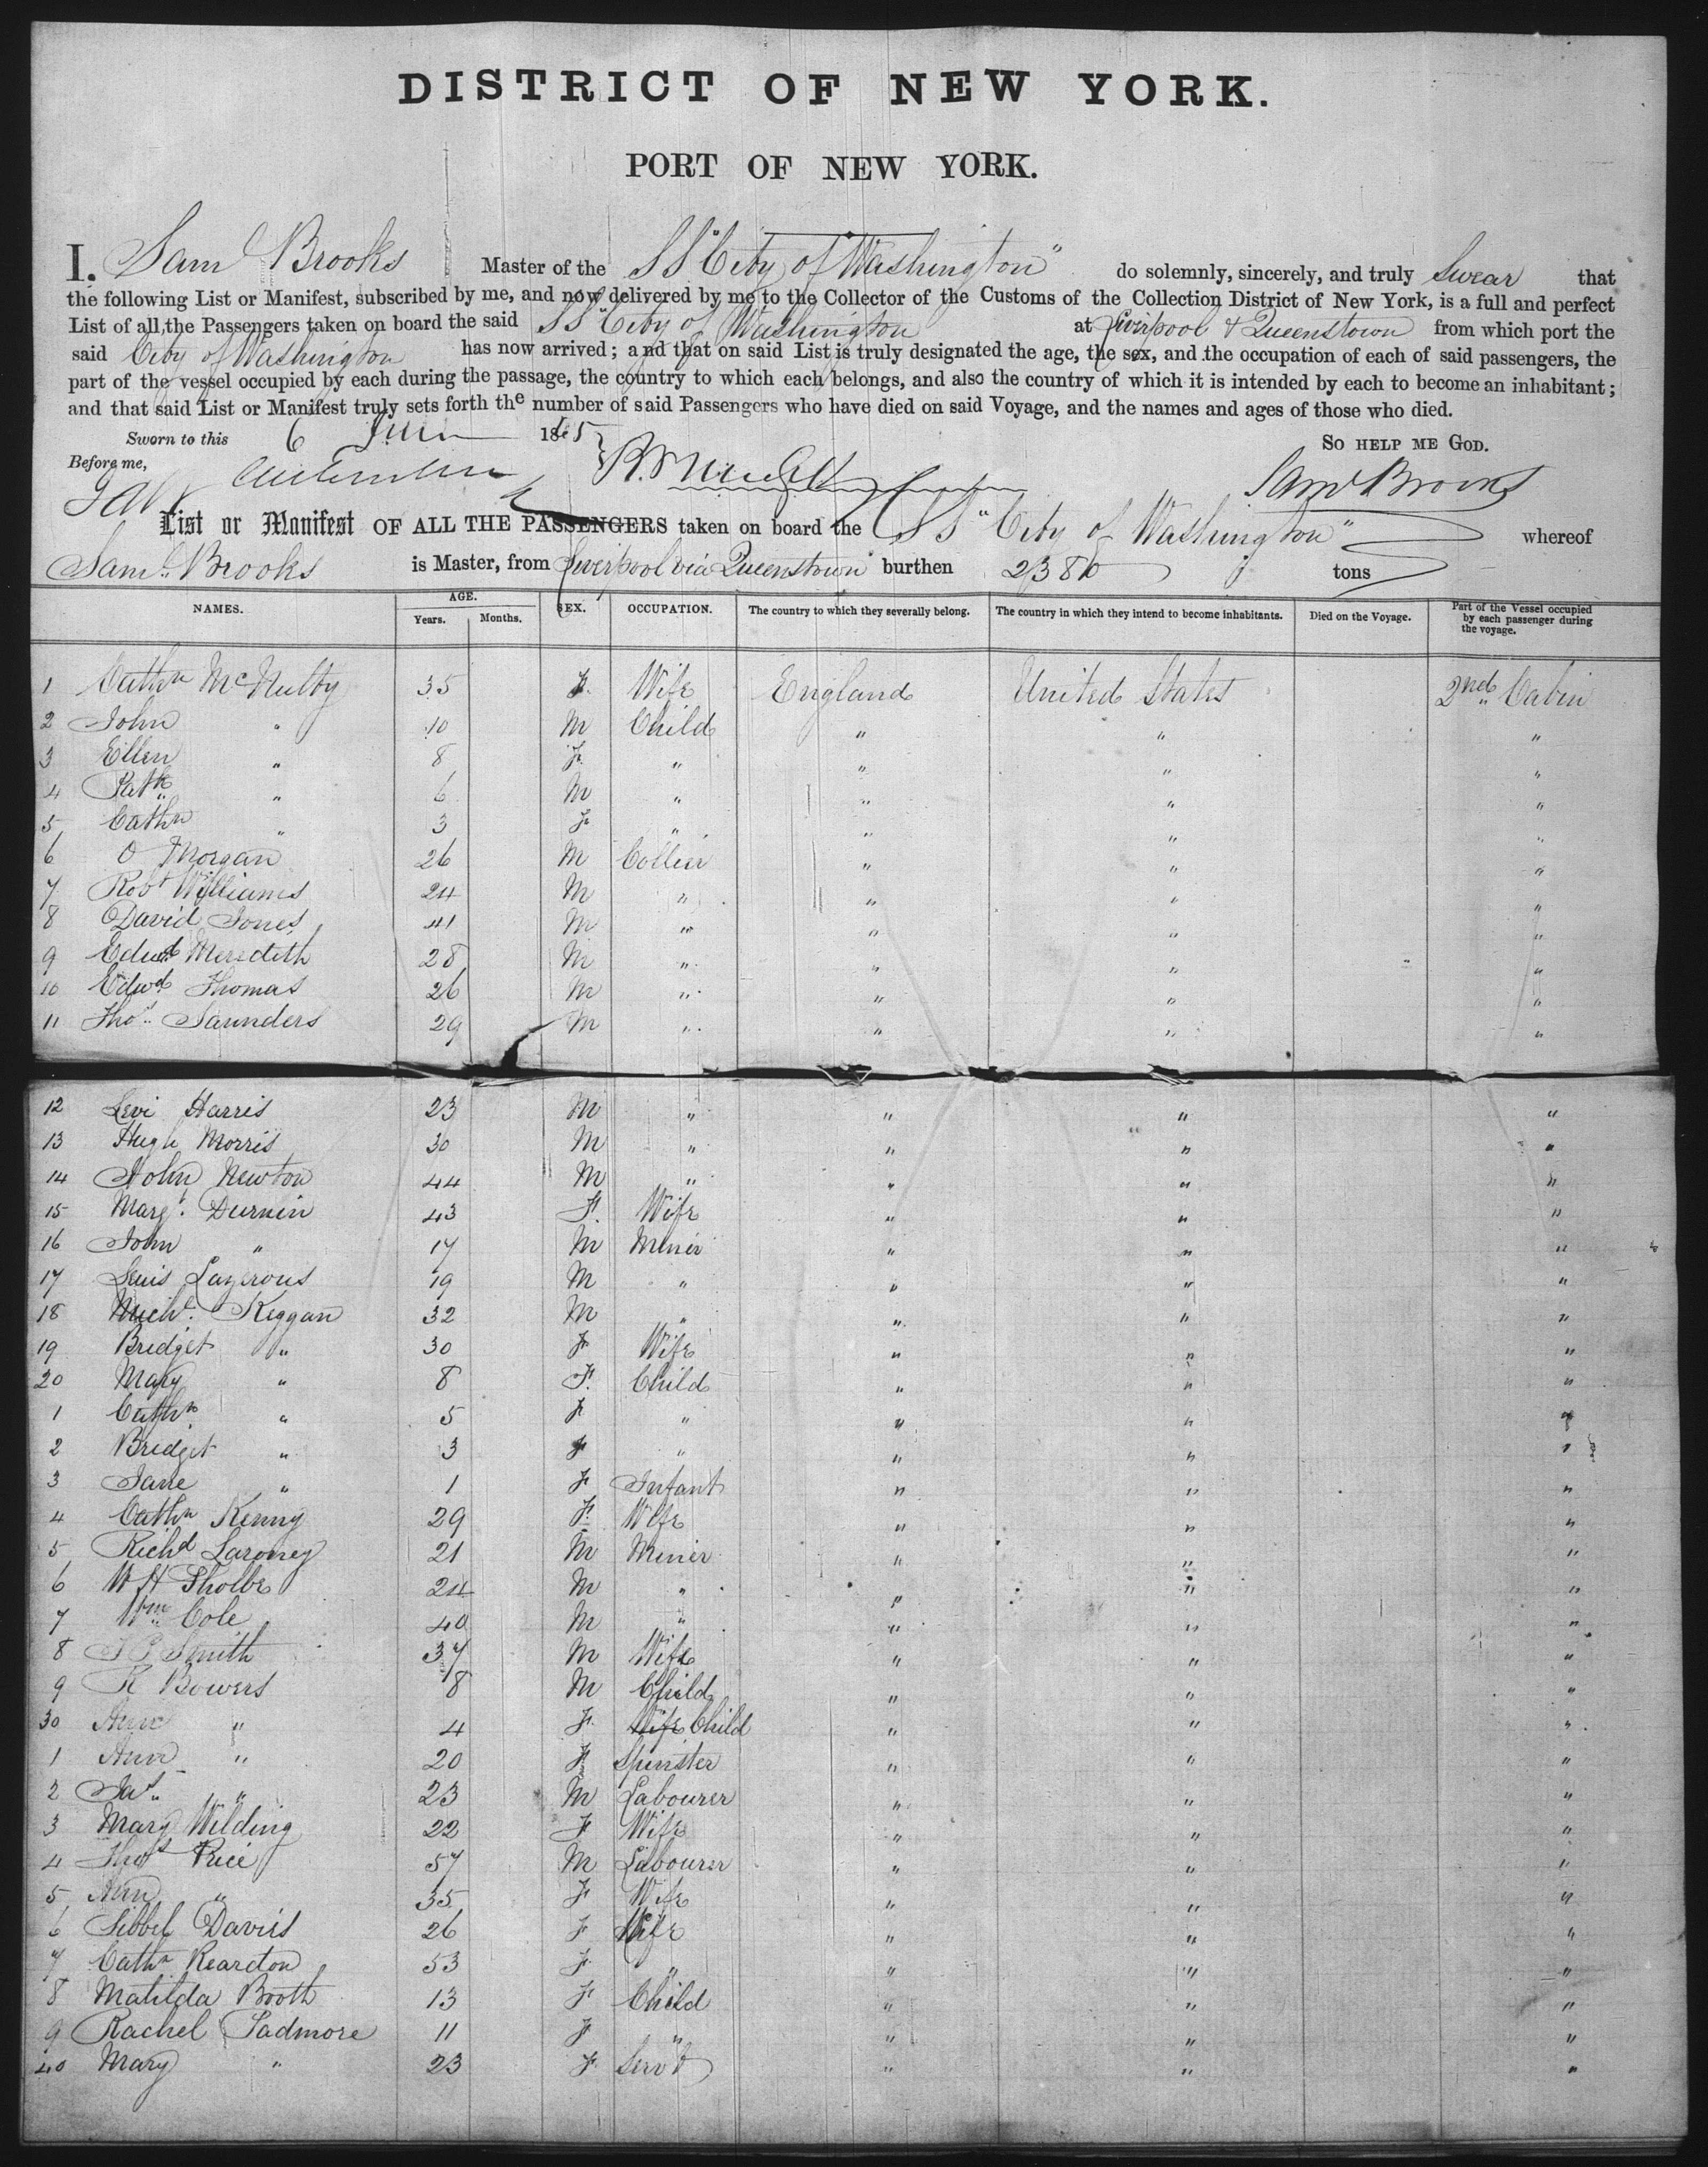 DISTRICT OF NEW YORK.
PORT OF NEW YORK.
I. Sam^l Brooks Master of the SS "City of Washington" do solemnly, sincerely, and truly Swear that
the following List or Manifest, subscribed by me, and now delivered by me to the Collector of the Customs of the Collection District of New York, is a full and perfect
List of all the Passengers taken on board the said SS "City of Washington at Liverpool & Queenstown from which port the
said City of Washington has now arrived; and that on said List is truly designated the age, the sex, and the occupation of each of said passengers, the
part of the vessel occupied by each during the passage, the country to which each belongs, and also the country of which it is intended by each to become an inhabitant;
and that said List or Manifest truly sets forth the number of said Passengers who have died on said Voyage, and the names and ages of those who died.
Sworn to this 6 June 1865 SO HELP ME GOD.
Before me, Sam^l Brooks
List or Manifest OF ALL THE PASSENGERS taken on board the SS "City of Washington" whereof
Sam^l Brooks is Master, from Liverpool via Queenstown burthen 2380 tons
NAMES. AGE. Years. Months. SEX. OCCUPATION. The country to which they severally belong. The country in which they intend to become inhabitants. Died on the Voyage. Part of the Vessel occupied by each passenger during the voyage.
1 Cathn McNulty 35 F. Wife England United States 2nd Cabin
2 John " 10 M Child " " "
3 Ellen " 8 F. " " " "
4 Patk " 6 M " " " "
5 Cathn " 3 F " " " "
6 O Morgan 26 M Collier " " "
7 Robt Williams 24 M " " " "
8 David Jones 41 M " " " "
9 Edwd Meredith 28 M " " " "
10 Edwd Thomas 26 M " " " "
11 Thos Saunders 29 M " " " "
12 Levi Harris 23 M " " " "
13 Hugh Morris 30 M " " " "
14 John Newton 44 M " " " "
15 Margt. Durnin 43 F. Wife " " "
16 John " 17 M Miner " " "
17 Lewis Lazerous 19 M " " " "
18 Michl. Keggan 32 M " " " "
19 Bridget " 30 F Wife " " "
20 Mary " 8 F. Child " " "
1 Cathn " 5 F " " " "
2 Bridget " 3 F " " " "
3 Jane " 1 F Infant " " "
4 Cathn Kenny 29 F. Wife " " "
5 Richd Laroney 21 M Miner " " "
6 W H Tholbe 24 M " " " "
7 Wm Cole 40 M " " " "
8 Smith 37 M Wife " " "
9 R Bowers 8 M Child " " "
30 Anne " 4 F. Wife Child " " "
1 Ann " 20 F Spinster " " "
2 Jas " 23 M Labourer " " "
3 Mary Wilding 22 F Wife " " "
4 Thos Price 57 M Labourer " " "
5 Ann " 35 F Wife " " "
6 Sibbel Davies 26 F Wife " " "
7 Cathn Reardon 53 F. " " " "
8 Matilda Booth 13 F Child " " "
9 Rachel Tadmore 11 F " " " "
40 Mary " 23 F Servt " " "